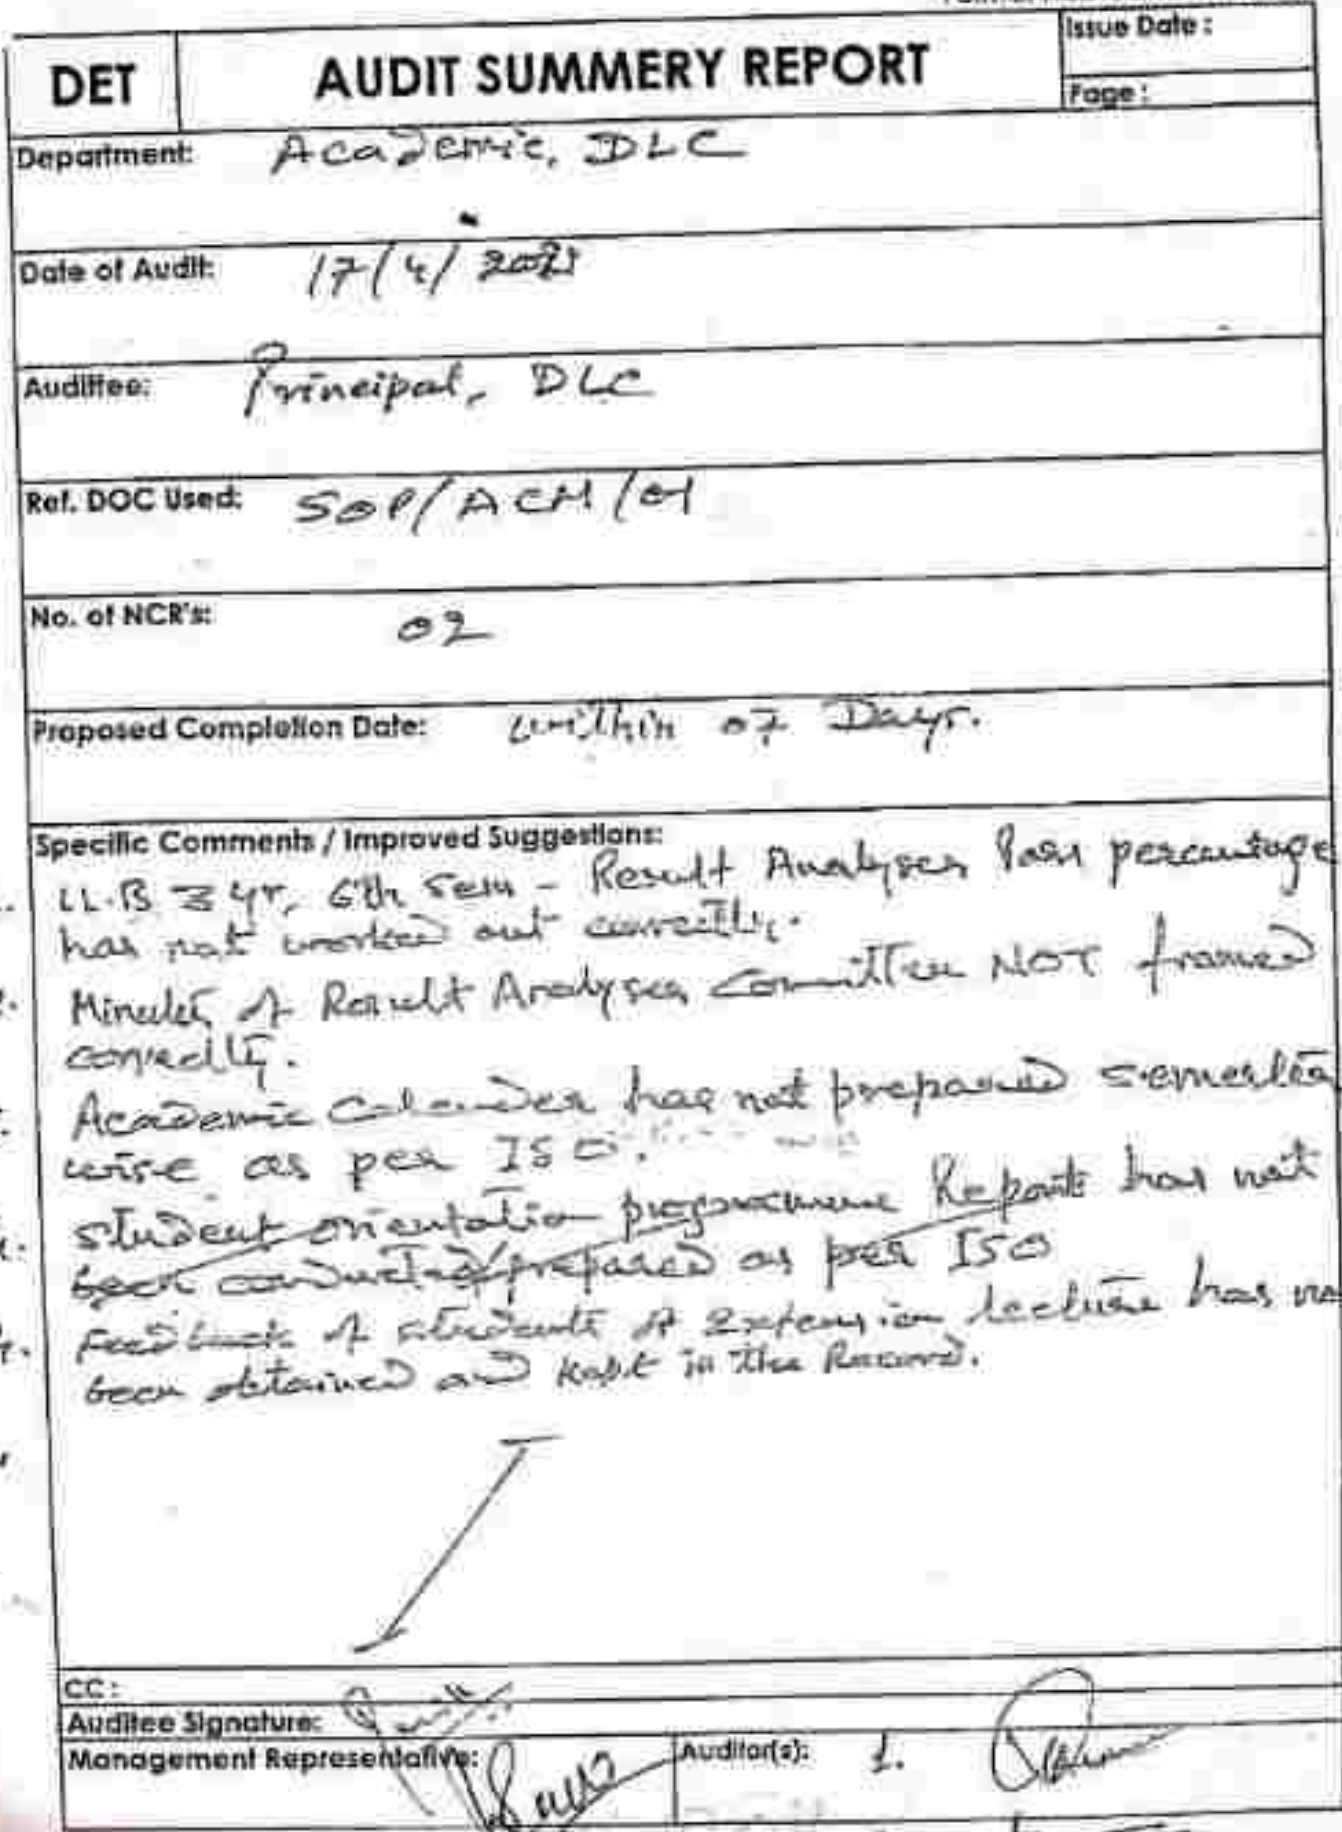 Issue Date :
DET
AUDIT SUMMERY REPORT
Page :
Department: Academic, DLC
Date of Audit: 17/4/2021
Auditee: Principal, DLC
Ref. DOC Used: SOP/ACM/01
No. of NCR's: 02
Proposed Completion Date: within 07 Days.
Specific Comments / Improved Suggestions:
LL.B 3 yr, 6th Sem - Result Analyses Pass percentage
has not worked out correctly.
Minutes of Result Analyses Committee NOT framed
correctly.
Academic Calender has not prepared semester
wise as per ISO.
student orientation programme Reports has not
been conducted/prepared as per ISO
Feedback of students of Extension lecture has
been obtained and kept in the Record.
CC :
Auditee Signature:
Management Representative:
Auditor(s): 1.